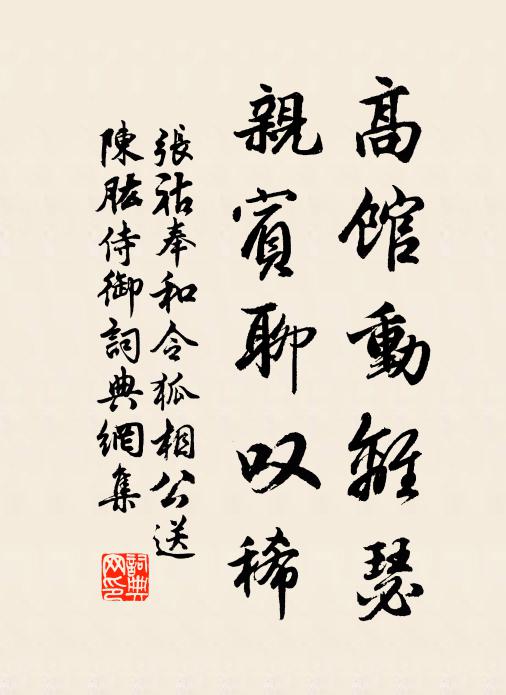 高館動離瑟
親賓聊叹稀
張祜奉和令狐相公送
陳肱侍御詞典網集
詞典網印